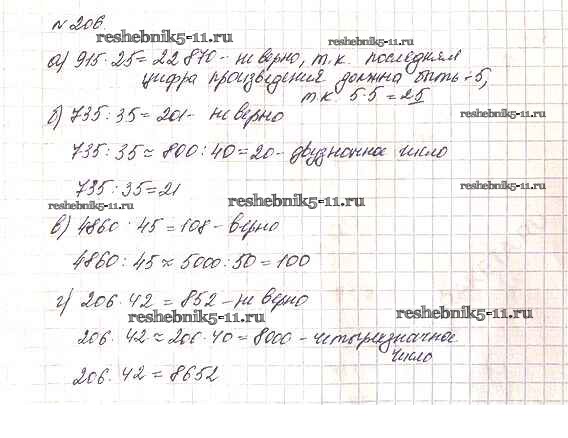 № 206.
reshebnik5-11.ru
а) 915·25=22870 - не верно, т.к. последняя
reshebnik5-11.ru
цифра произведения должна быть - 5,
т.к. 5·5=25
б) 735:35=201 - не верно
reshebnik5-11.ru
735:35≈800:40=20 - двузначное число
735:35=21
reshebnik5-11.ru
reshebnik5-11.ru
reshebnik5-11.ru
в) 4860:45=108 - верно
4860:45≈5000:50=100
г) 206·42=852 - не верно
reshebnik5-11.ru
reshebnik5-11.ru
206·42≈200·40=8000 - четырехзначное
число
206·42=8652